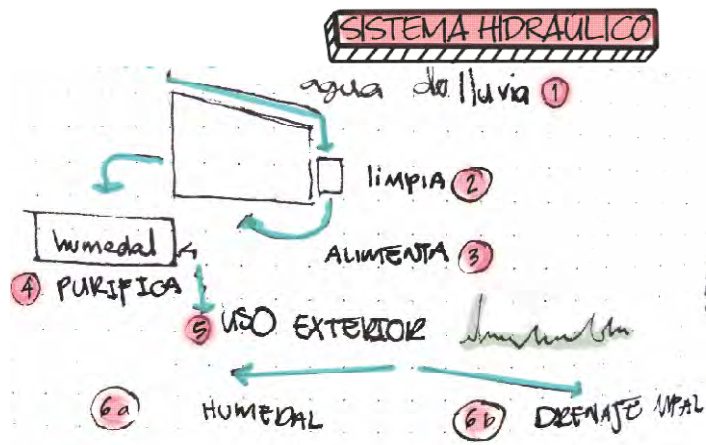 SISTEMA HIDRAÚLICO
agua de lluvia 1
limpia 2
ALIMENTA 3
humedal
4 PURIFICA
5 USO EXTERIOR
6a HUMEDAL
6b DRENAJE MPAL